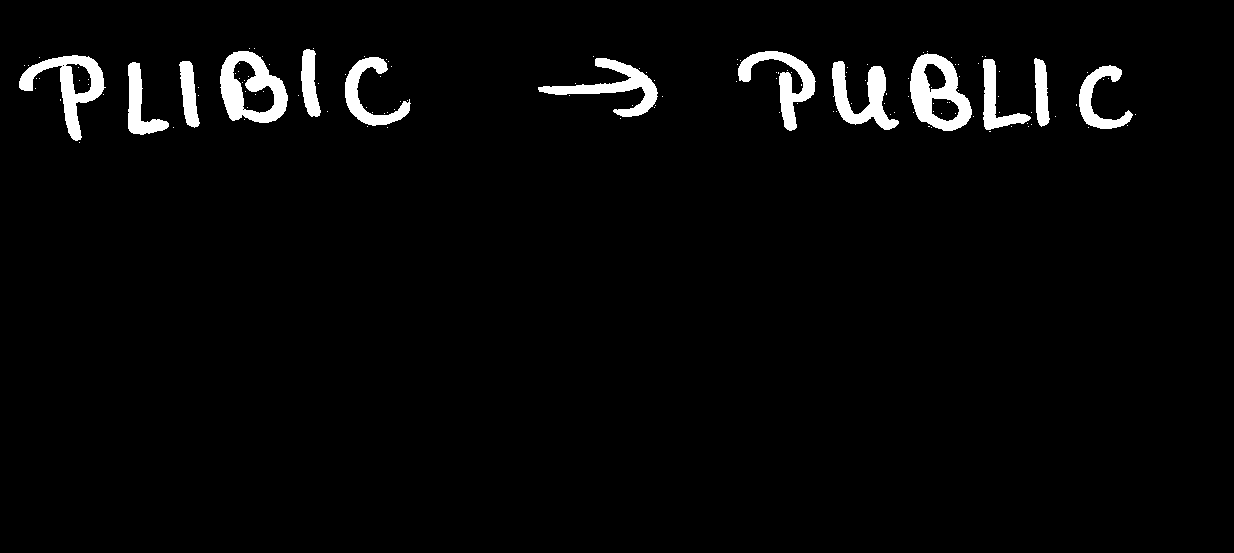 PLIBIC → PUBLIC